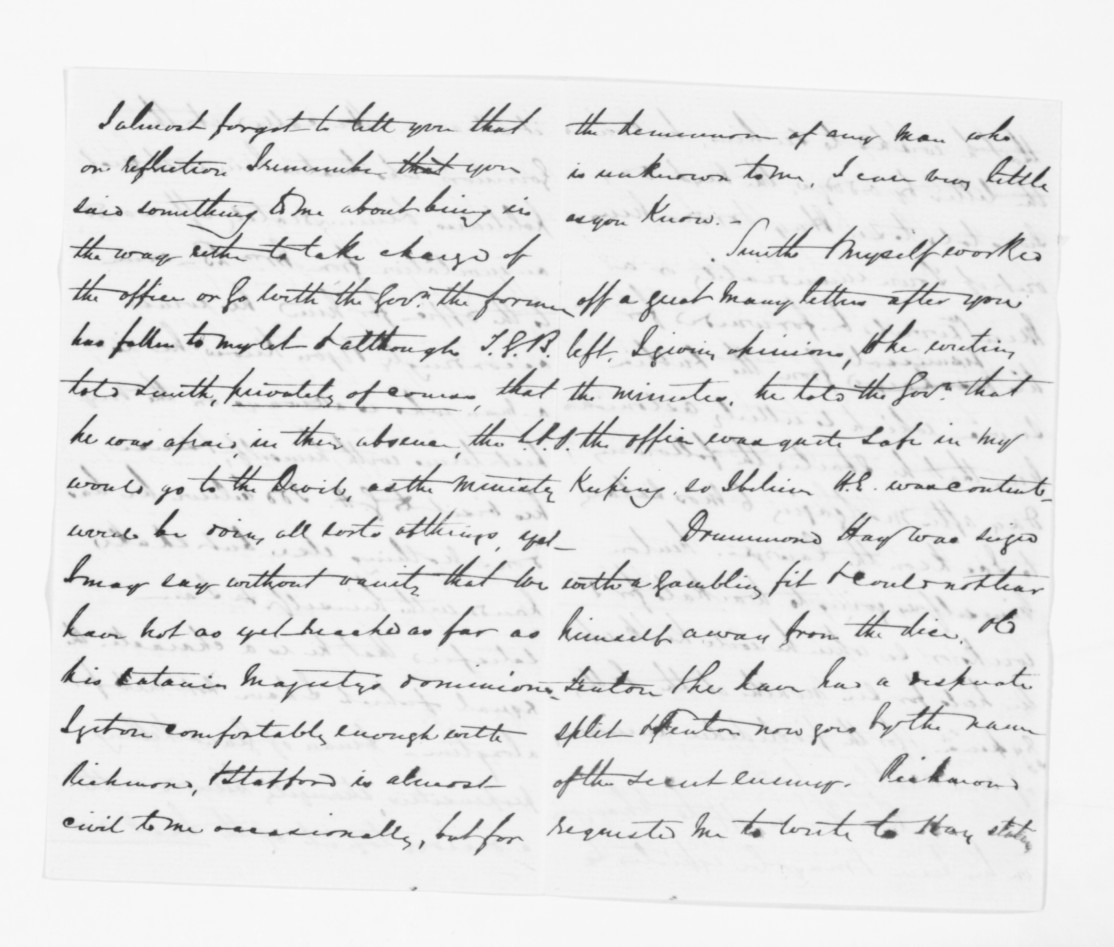 I almost forgot to tell you that
on reflection I remember that you
said something to me about being in
the way either to take charge of
the office or go with the Govr. the former
has fallen to my lot & although T.G.B.
told Smith, privately of course, that
he was afraid in their absence, the
would go to the Devil, as the Ministry
would be doing all sorts of things, yet
I may say without vanity that we
have not as yet reached as far as
his Satanic Majesty's dominions.
I get on comfortably enough with
Richmond, & Stafford is almost
civil to me occasionally, but for
the demeanour of any man who
is unknown to me, I care very little
as you know. -
Smith & Myself worked
off a great many letters after you
left, I giving opinions, & he writing
the minutes, he told the Govr. that
the office was quite safe in my
Keeping, so I believe H.E. was content-
Drummond Hay was seized
with a gambling fit & could not tear
himself away from the dice,
Fenton & he have had a desperate
split & Fenton now goes by the name
of the secret enemy. Richmond
requested me to write to Hay stating